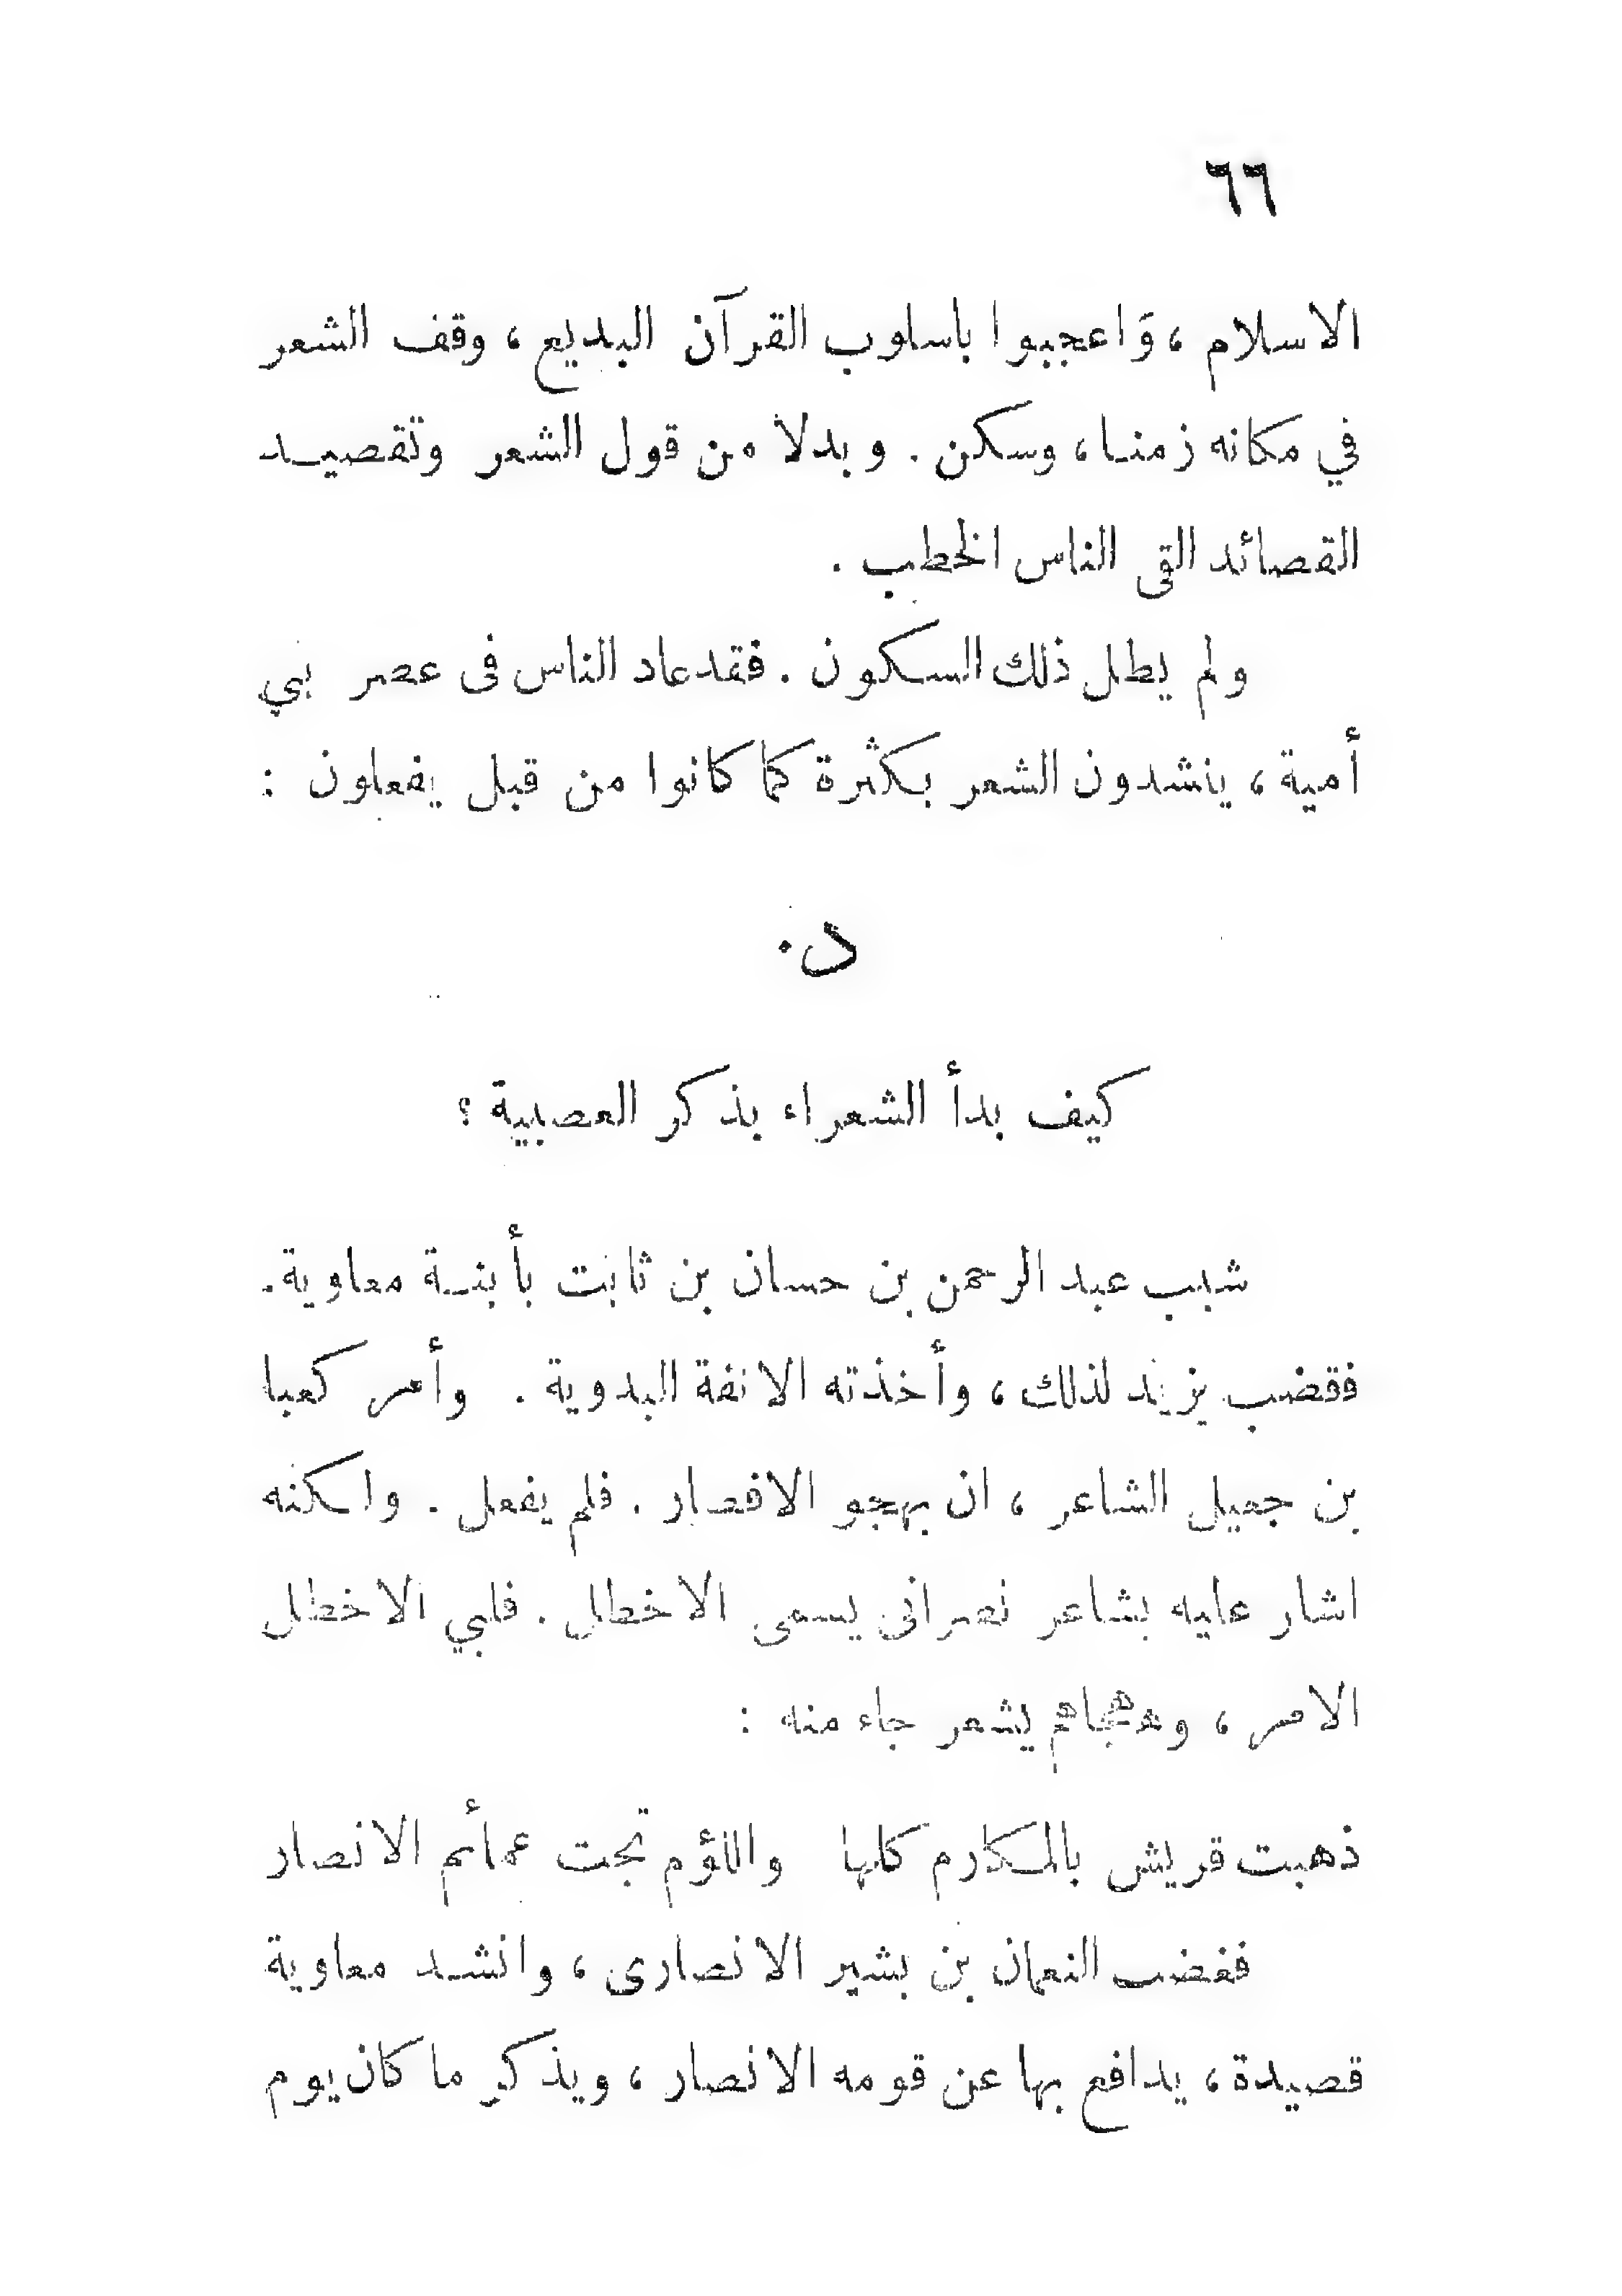 ٦٦
الاسلام ، وَاعجبوا باسلوب القرآن البديع ، وقف الشعر
في مكانه زمنا ، وسكن . وبدلا من قول الشعر وتقصيد
القصائد القى الناس الخطب .
ولم يطل ذلك السكون . فقد عاد الناس فى عصر بني
أمية ، ينشدون الشعر بكثرة كما كانوا من قبل يفعلون :
د.
كيف بدأ الشعراء بذكر العصبية ؟
شبب عبد الرحمن بن حسان بن ثابت بأبنة معاوية .
فقضب يزيد لذلك ، وأخذته الانفة البدوية . وأمر كعبا
بن جعيل الشاعر ، ان يهجو الانصار . فلم يفعل . ولكنه
اشار عليه بشاعر نصرانى يسمى الاخطل . فلبي الاخطل
الامر ، وهجاهم بشعر جاء منه :
ذهبت قريش بالمكارم كلها واللؤم تحت عمأئم الانصار
فغضب النعمان بن بشير الانصارى ، وانشد معاوية
قصيدة ، يدافع بها عن قومه الانصار ، ويذكر ما كان يوم